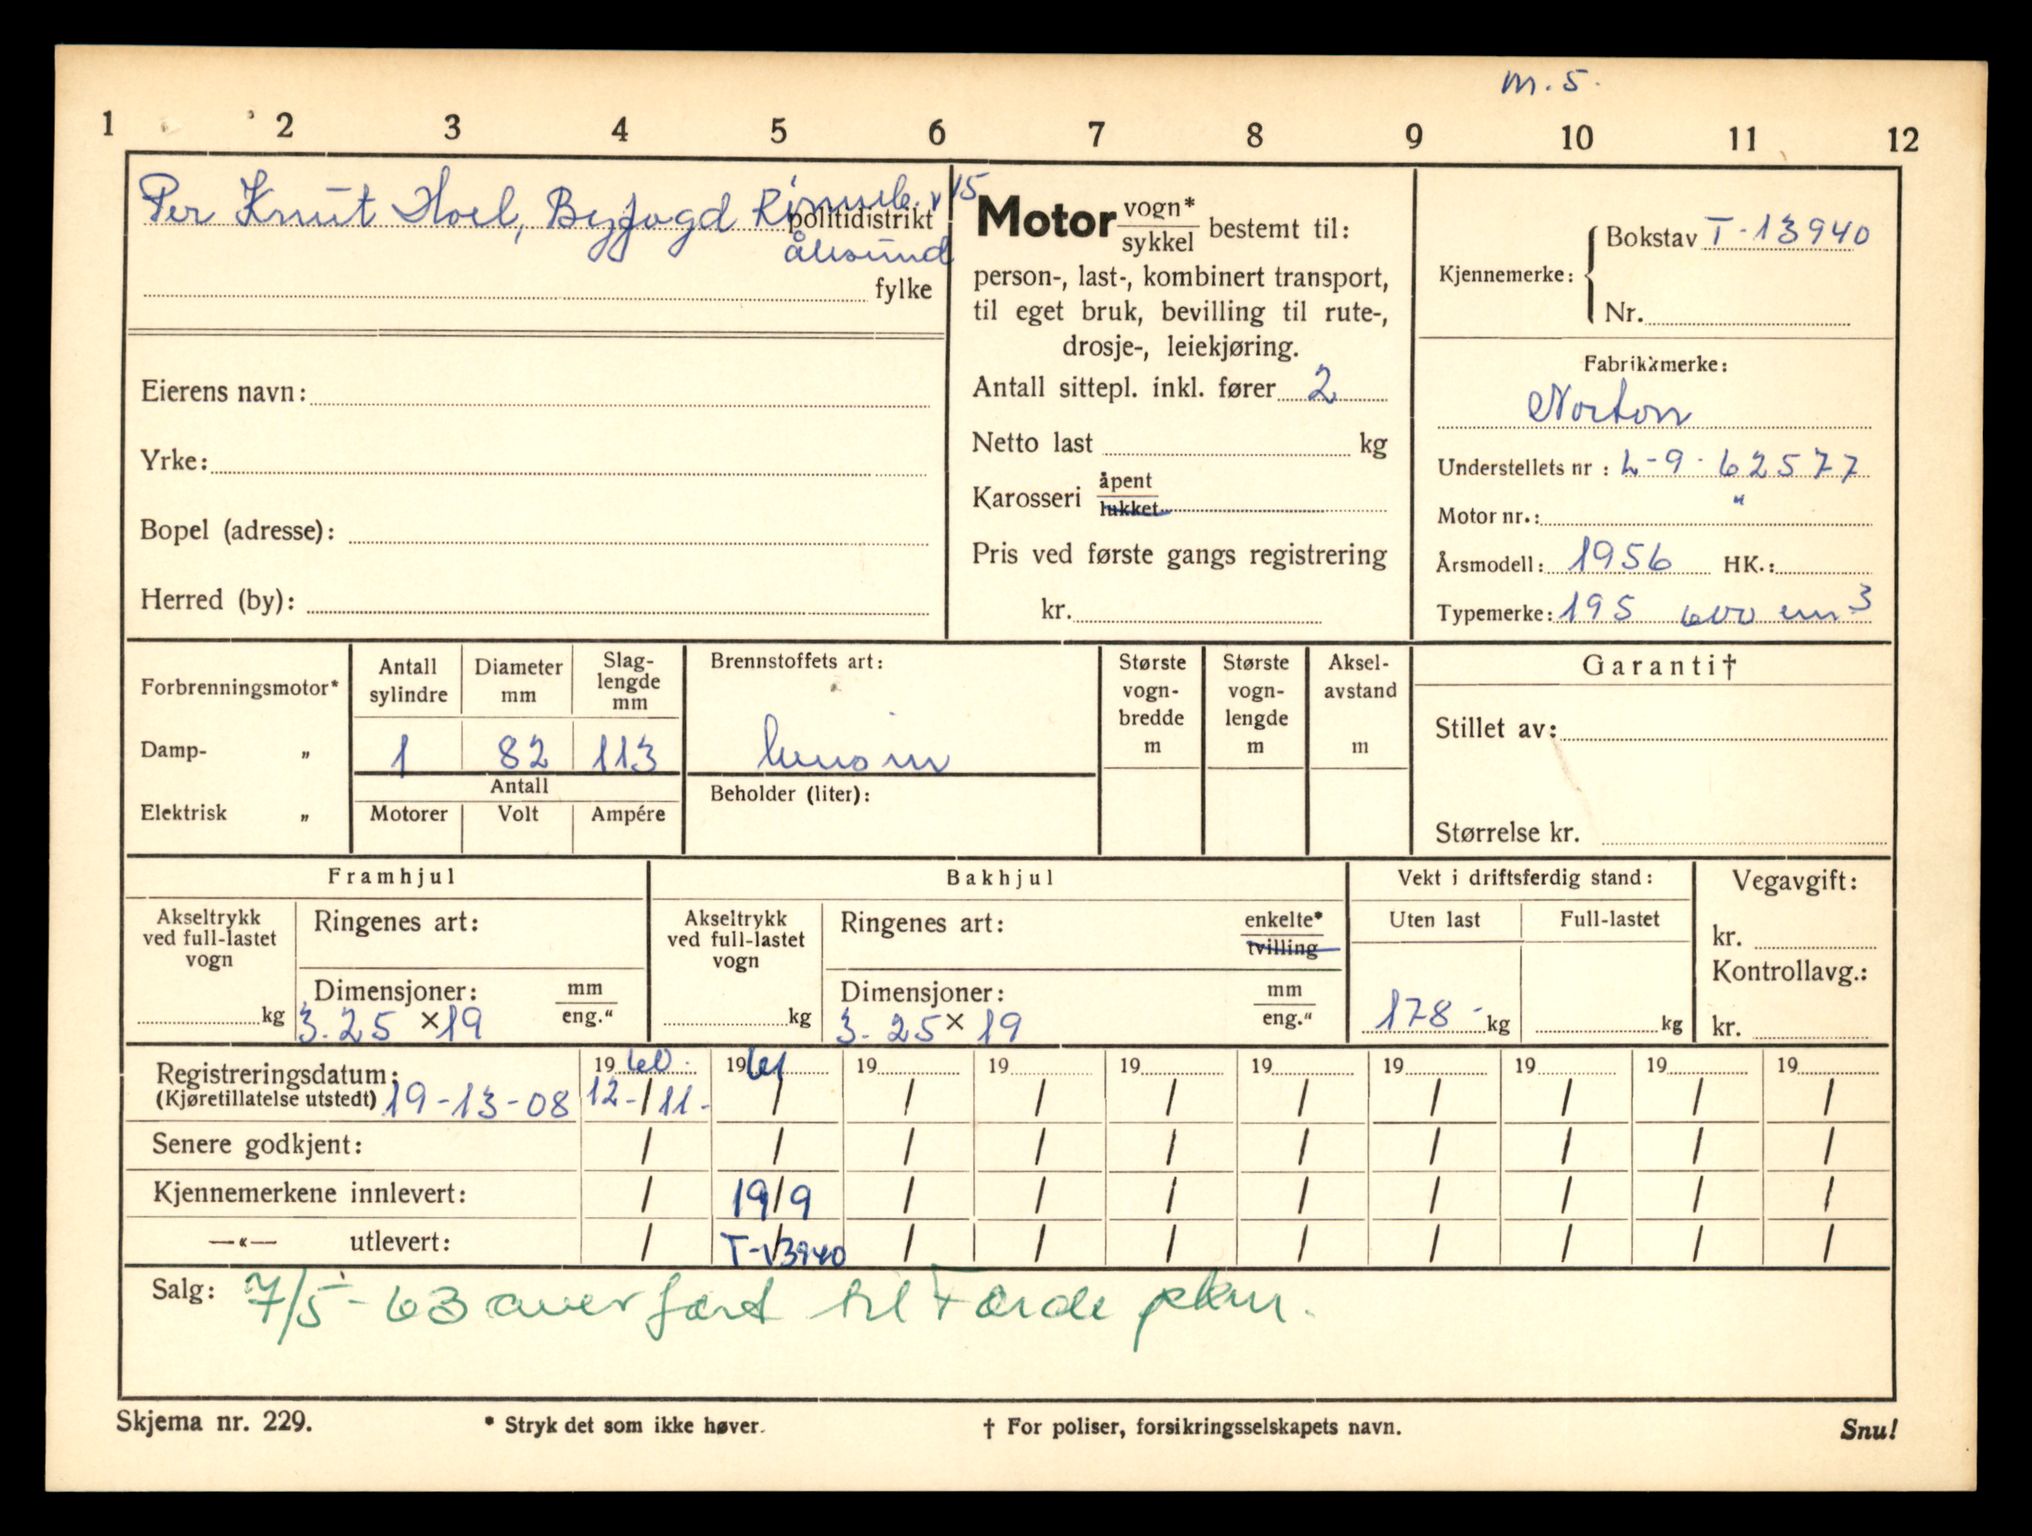 m. 5.
1 2 3 4 5 6 7 8 9 10 11 12
Per Knut Hoel, Byfogd v 15
politidistrikt
Ålesund
fylke
Eierens navn:
Yrke:
Bopel (adresse):
Herred (by):
Motor vogn* sykkel bestemt til:
person-, last-, kombinert transport,
til eget bruk, bevilling til rute-,
drosje-, leiekjøring.
Antall sittepl. inkl. fører 2
Netto last kg
Karosseri åpent lukket
Pris ved første gangs registrering
kr.
Kjennemerke: Bokstav T-13940
Nr.
Fabrikkmerke:
Norton
Understellets nr : L-9-62577
Motor nr.: "
Årsmodell: 1956 HK.:
Typemerke: 195 600 cm3
Forbrenningsmotor*
Damp- "
Elektrisk "
Antall sylindre
Diameter mm
Slag-lengde mm
1 82 113
Antall
Motorer Volt Ampére
Brennstoffets art:
bensin
Beholder (liter):
Største vogn-bredde m
Største vogn-lengde m
Aksel-avstand m
Garanti†
Stillet av:
Størrelse kr.
Framhjul
Akseltrykk ved full-lastet vogn
kg
Ringenes art:
Dimensjoner: mm eng."
3.25 x 19
Bakhjul
Akseltrykk ved full-lastet vogn
kg
Ringenes art: enkelte* tvilling
Dimensjoner: mm eng."
3.25 x 19
Vekt i driftsferdig stand:
Uten last Full-lastet
178 kg kg
Vegavgift:
kr.
Kontrollavg.:
kr.
19 60 19 61 19 19 19 19 19 19 19 19
Registreringsdatum:
(Kjøretillatelse utstedt) 19-13-08 12-/11- / / / / / / / / /
Senere godkjent: / / / / / / / / / /
Kjennemerkene innlevert: / 19/9 / / / / / / / /
—«— utlevert: / T-13940 / / / / / / / /
Salg: 7/5-63 overført til Førde pkm.
Skjema nr. 229.
* Stryk det som ikke høver.
† For poliser, forsikringsselskapets navn.
Snu!